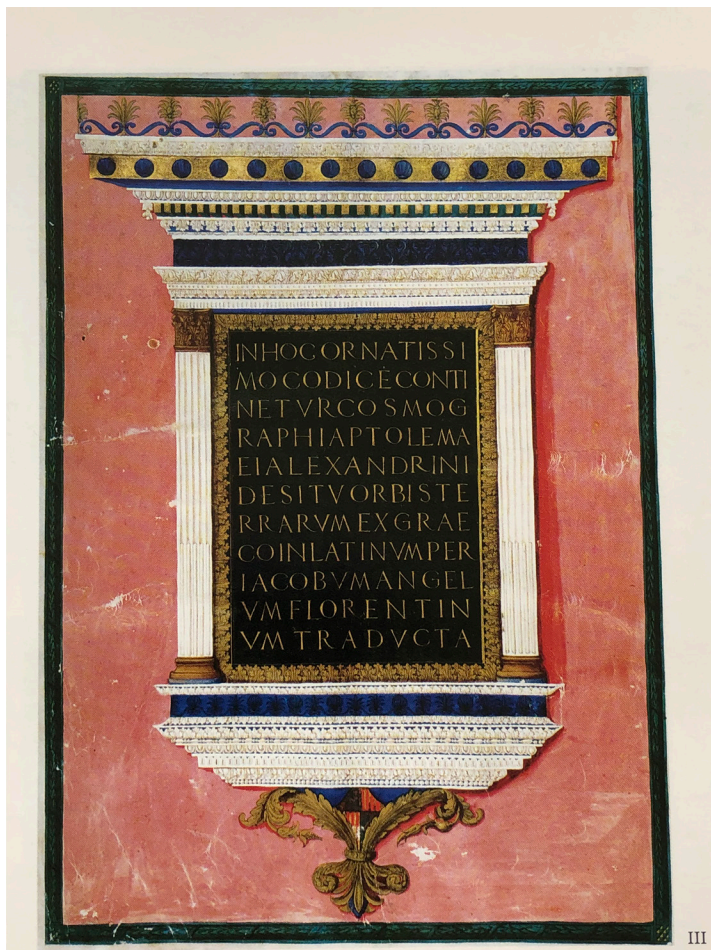 INHOCORNATISSI
MOCODICECONTI
NETVRCOSMOG
RAPHIAPTOLEMA
EIALEXANDRINI
DESITVORBISTE
RRARVMEXGRAE
COINLATINVMPER
IACOBVMANGEL
VMFLORENTIN
VMTRADVCTA
III